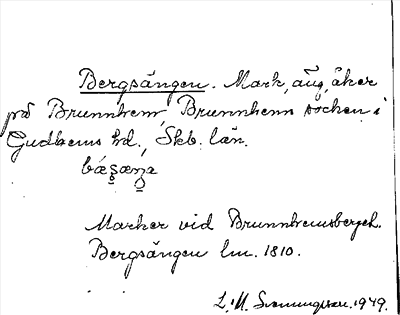 Bergsängen. Mark, äng, åker
på Brunnhem, Brunnhems socken i
Gudhems hd., Skb. län.
Marker vid Brunnhemsberget.
Bergsängen lm. 1810.
L. M. Svenungsson. 1949.